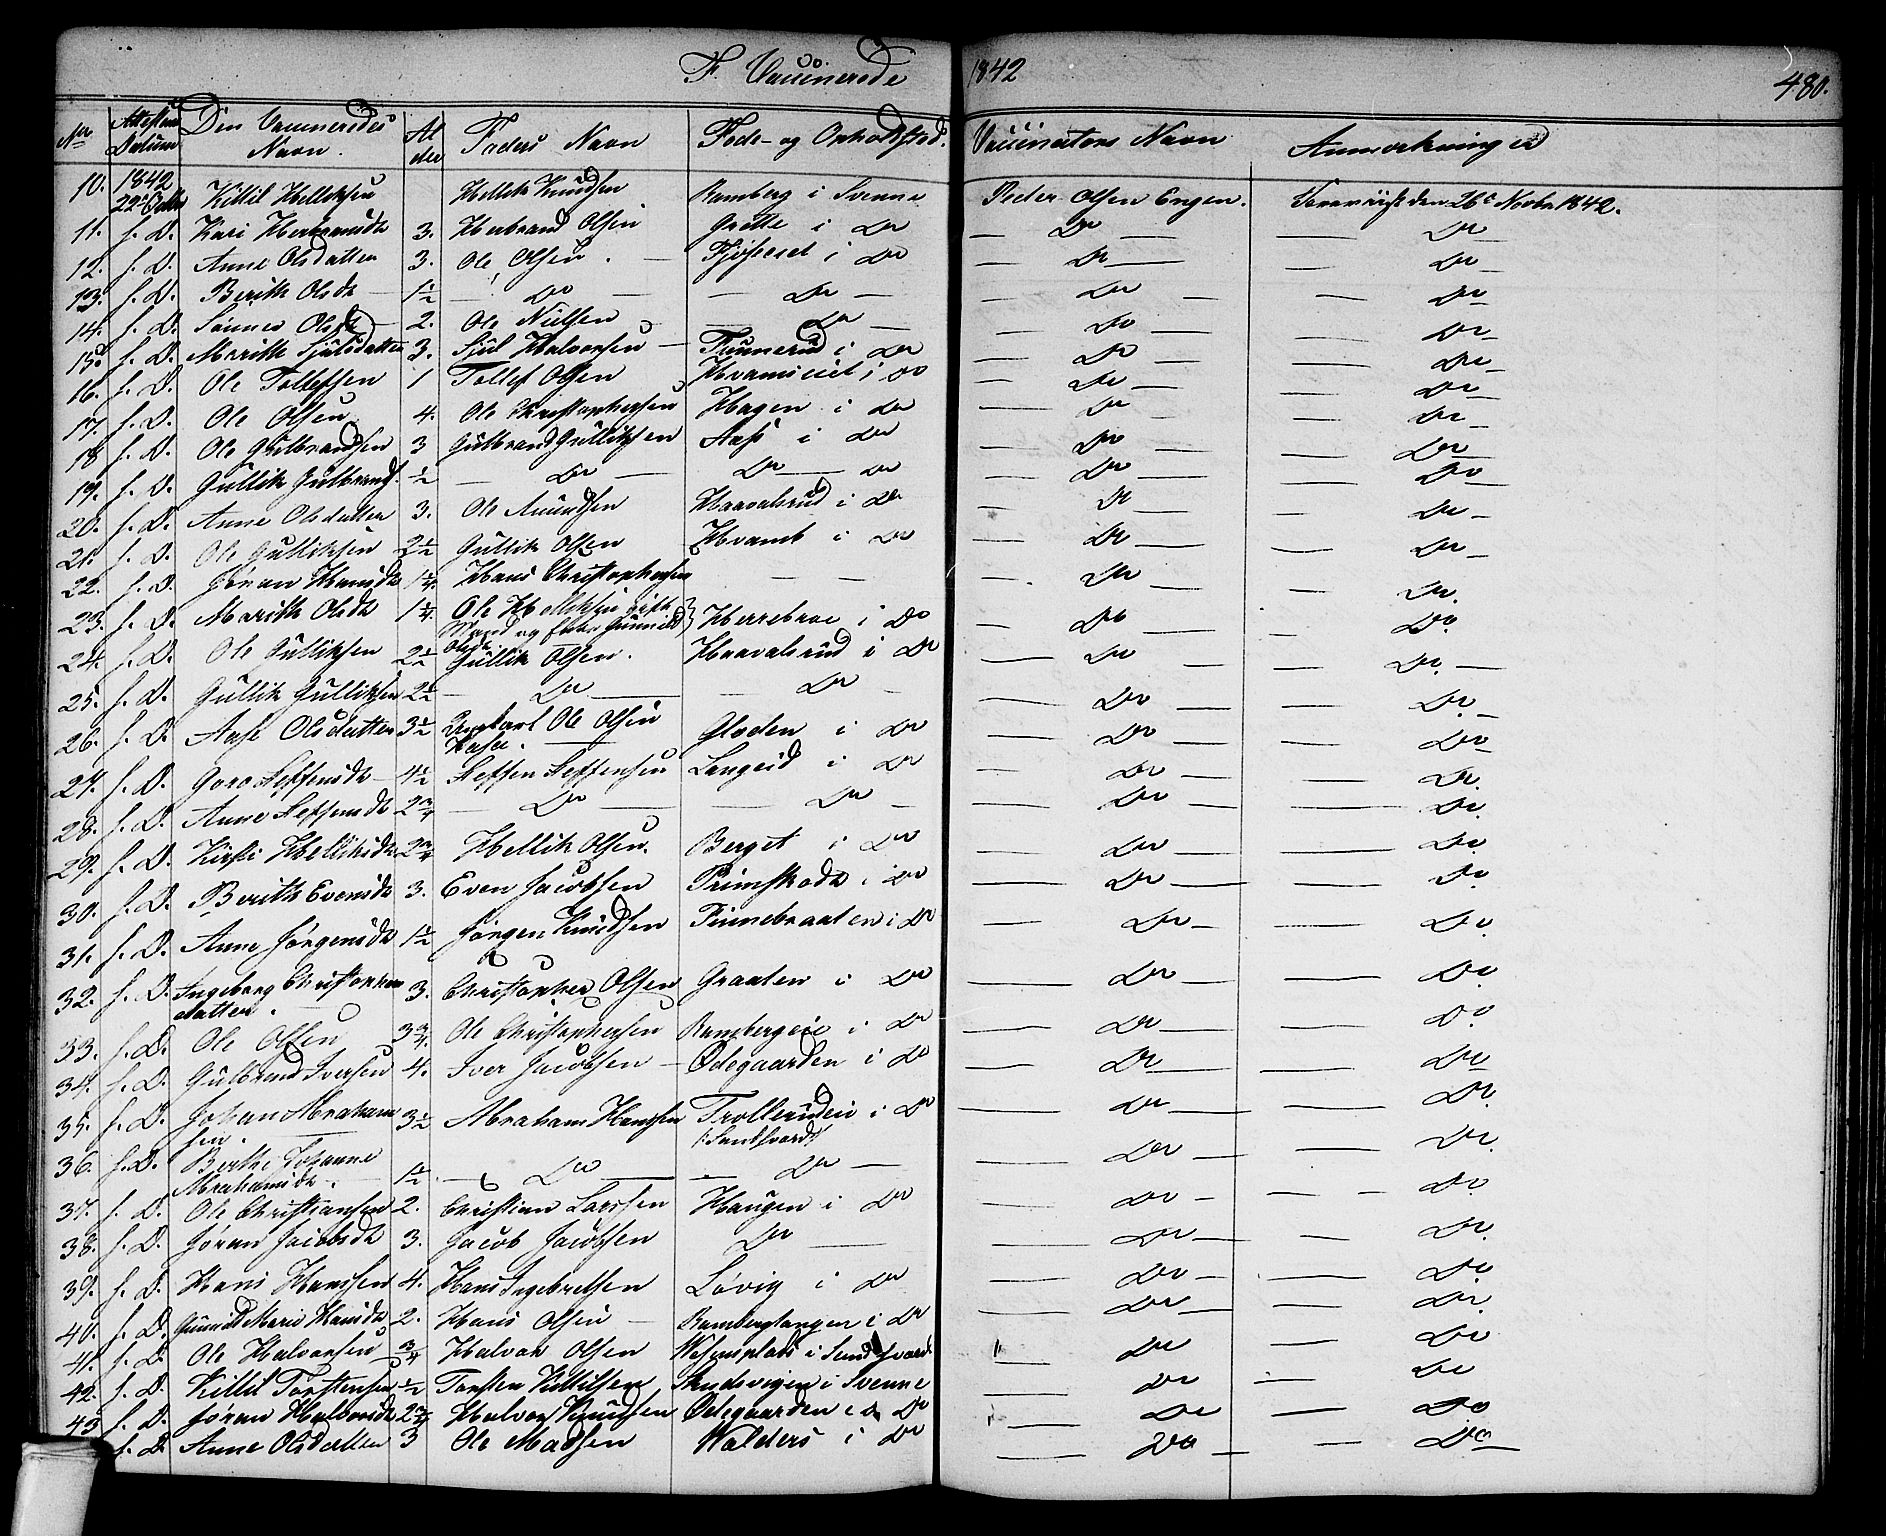 F. Vaccinerede 1842 480.
Nr Attestens Datum Den Vaccineredes Navn. Alder Faders Navn Føde- og Opholdssted. Vaccinateurs Navn Anmærkninger
10. 1842 22de Octbr Kittil Helliksen Hellik Knudsen Ramberg i Svenne Peder Olsen Engen. Foreviist den 26e Novbr 1842.
11. s. D. Kari Herbransdtr 3. Herbrand Olsen Grøtte i Do — Do — — Do —
12. s. D. Anne Olsdatter 3. Ole Olsen. — i Do — Do — — Do —
13. s. D. Berith Olsdtr — 1½ — Do — — Do — — Do — — Do —
14. s. D. Olsdtr — 2. Ole Nielsen — Do — — Do — — Do —
15. s. D. Marithe Sjulsdatter 3. Sjul Halvorsen — i Do — Do — — Do —
16. s. D. Ole Tollefsen 1 Tollef Olsen i Do — Do — — Do —
17. s. D. Ole Olsen 4. Ole Christophersen Hagen i Do — Do — — Do —
18 s. D. Ole Gulbrandsen 3 Gulbrand Gulliksen Aas i Do — Do — — Do —
19. s. D. Gullik Gulbrands. ½ — Do — Do — Do — Do — — Do
20. s. D. Anne Olsdatter 3. Ole Amundsen Haavalsrud i Do — Do — — Do —
21. s. D. Ole Gulliksen 2½ Gullik Olsen Hvamb i Do — Do — — Do —
22. s. D. Jøran Hansdtr 1¼. Hans Christophersen — — — Do — — Do.
23. s. D. Marith Olsdtr 1¼. Ole Helliksen gift Mand og Gunnild Olsdtr Herrebroe i Do — Do — — Do.
24. s. D. Ole Gulliksen 2½ Gullik Olsen. Haavalsrud i Do — Do — — Do. —
25. s. D. Gullik Gulliksen 2½ — Do — — Do — — Do — — Do. —
26. s. D. Aase Olsdatter 3½ Ungkarl Ole Olsen — Gloden i Do — Do — — Do —
27. s. D. Goro Steffensdtr — 4½ Steffen Steffensen Langeid i Do — Do — — Do.
28. s. D. Anne Steffensdtr 2¾ — Do — — Do — — Do — — Do.
29. s. D. Kirsti Helliksdtr. 2¾ Hellik Olsen. Berget i Do — Do — — Do.
30. s. D. Berith Evensdtr 3. Even Jacobsen i Do — Do — — Do.
31. s. D. Anne Jørgensdtr 1½ Jørgen Knudsen Finnebraaten i Do — Do — — Do.
32. s. D. Ingeborg Christophersdatter. — 3. Christopher Olsen Graaten i Do — Do — — Do.
33. s. D. Ole Olsen 3¾. Ole Christophersen Rambergeie i Do — Do — — Do.
34. s. D. Gulbrand Iversen 4. Iver Jacobsen — Ødegaarden i Do — Do — — Do
35. s. D. Johan Abrahamsen. — 3½ Abraham Hanssen Trollerudeie i Do — Do — — Do.
36. s. D. Berthe Johanne Abrahamsdtr. — 1½ — Do — — Do — — Do — — Do.
37. s. D. Ole Christiansen 2. Christian Larssen Haugen i Do — Do — — Do.
38. s. D. Jøran Jacobsdtr 3. Jacob Jacobsen Do — — Do — — Do.
39. s. D. Hans Hanssen 4. Hans Ingebretsen Løvig i Do — Do — — Do.
40. s. D. Gunnild Marie Hansdtr 2. Hans Olsen — Rambergtangen i Do — Do — — Do.
41. s. D. Ole Halvorsen ¾ Halvor Olsen i — Do — Do
42. s. D. Kittil Torstensen ½ Torsten Kittilsen Strudsvigen i Svenne — Do — Do
43 s. D. Jøran Halvorsdtr 2¾ Halvor Knudsen Ødegaarden i Do — Do — Do
s. D. Anne Olsdatter 3 Ole Madsen Walders i Do — Do — — Do —